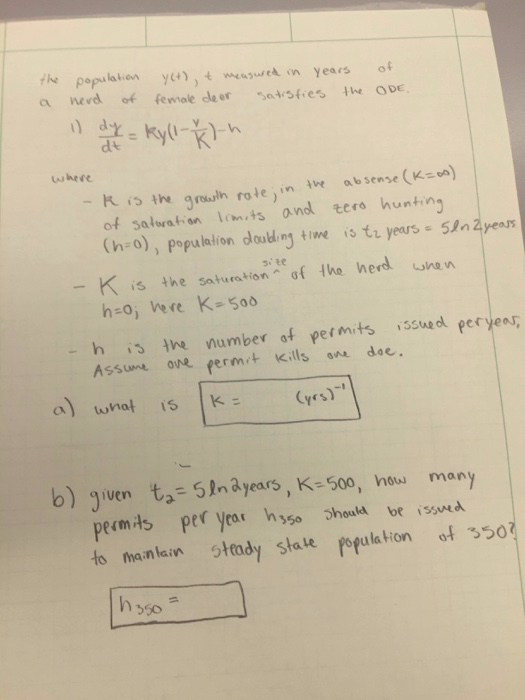 the population y(t), t measured in years of
a herd of female deer satisfies the ODE.
1) dy/dt = ky(1-y/K)-h
where
- k is the growth rate; in the absense (K=∞)
of saturation limits and zero hunting
(h=0), population doubling time is t₂ years = 5ln2 years
- K is the saturation ^size of the herd when
h=0; here K=500
- h is the number of permits issued per year,
Assume one permit kills one doe.
a) what is k = (yrs)⁻¹
b) given t₂ = 5ln2years, K=500, how many
permits per year h350 should be issued
to maintain steady state population of 350?
h350 =